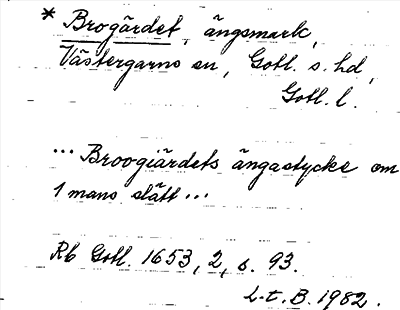 * Brogärdet, ängsmark,
Västergarns sn, Gotl. s. hd,
Gotl. l.
... Broogiärdets ängastycke om
1 mans slått ...
Rb Gotl. 1653, 2, s. 93.
L.t.B. 1982.